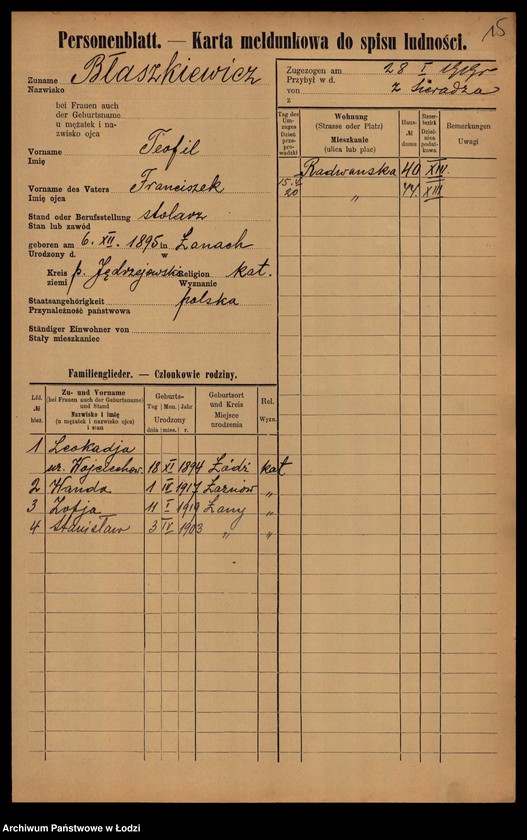 15
Personenblatt. — Karta meldunkowa do spisu ludności.
Zuname Błaszkiewicz
Nazwisko
bei Frauen auch
der Geburtsname
u mężatek i na-
zwisko ojca
Vorname Teofil
Imię
Vorname des Vaters Franciszek
Imię ojca
Stand oder Berufsstellung stolarz
Stan lub zawód
geboren am 6. XII. 1895 in Łanach
Urodzony d. w
Kreis p. Jędrzejowski Religion kat.
ziemi Wyznanie
Staatsangehörigkeit polska
Przynależność państwowa
Ständiger Einwohner von
Stały mieszkaniec
Zugezogen am 28 I 1919 r
Przybył w d.
von z Sieradza
z
Tag des Um-zuges Dzień prze-prowadzki
Wohnung (Strasse oder Platz) Mieszkanie (ulica lub plac)
Haus- № domu
Steuer-bezirk Dziel-nica podat-kowa
Bemerkungen Uwagi
Radwańska 40 XIII
20 „ 44 XIII
Familienglieder. — Członkowie rodziny.
Lfd. № bież.
Zu- und Vorname (bei Frauen auch der Geburtsname) und Stand Nazwisko i imię (u mężatek i nazwisko ojca) i stan
Geburts- Tag Mon. Jahr Urodzony dnia mies. r.
Geburtsort und Kreis Miejsce urodzenia
Rel. Wyzn.
1 Leokadja
ur. Wojciechow. 18 XI 1894 Łódź kat
2 Wanda 1 IV 1917 Żarnów „
3 Zofja 11 I 1919 Łany „
4 Stanisław 3 IV 1903 „ „
Archiwum Państwowe w Łodzi